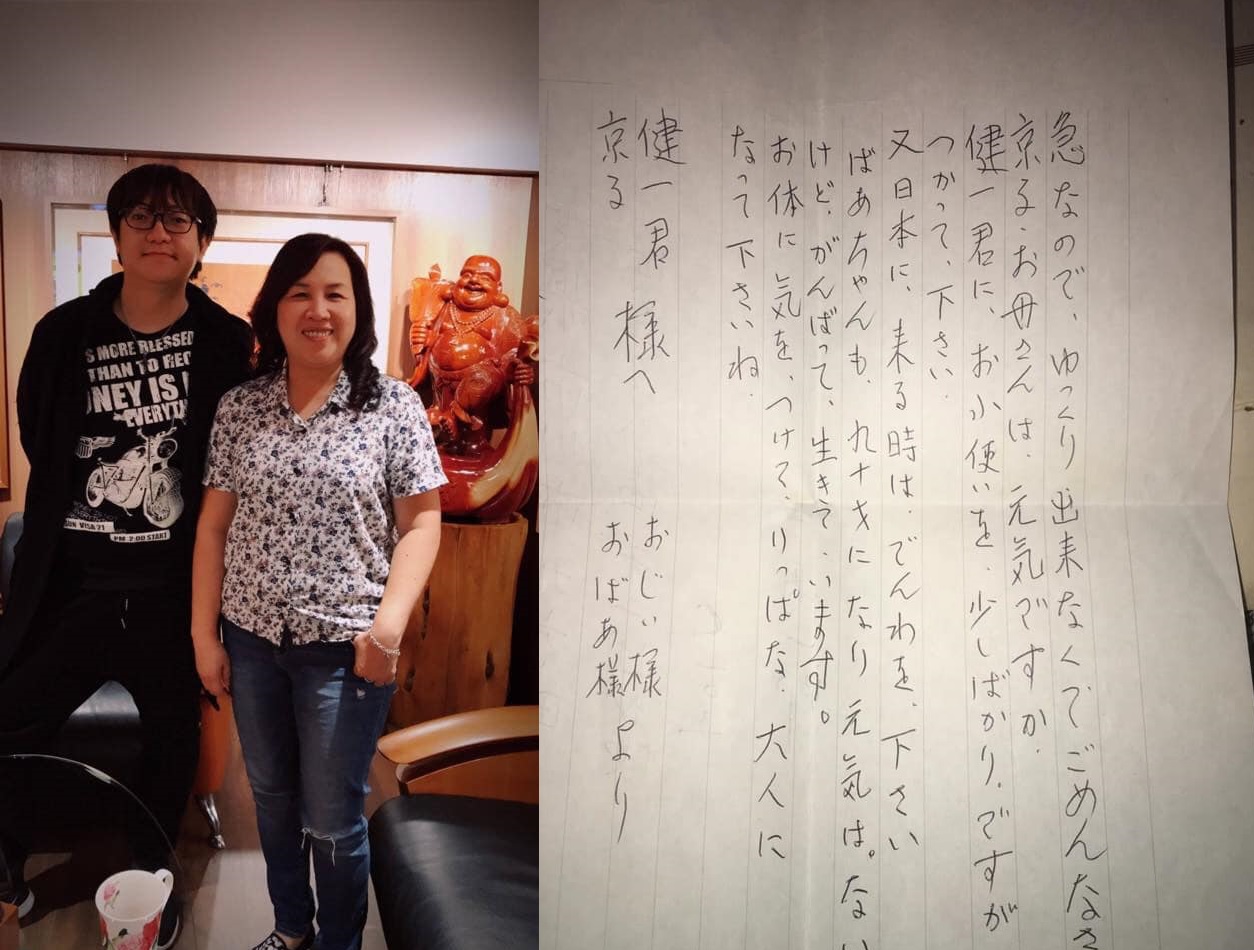 S MORE BLESSED
THAN TO REC
ONEY IS
EVERYTH
SUN VISA'21
PM 2:00 START
急なので、ゆっくり出来なくてごめんなさ
京る.お母さんは、元気ですか.
健一君に、お小使いを、少しばかり.ですが
つかって、下さい.
又日本に、来る時は.でんわを、下さい
ばあちゃんも、九十才になり元気は。ない
けど、がんばって、生きて、います。
お体に気を、つけて、りっぱな、大人に
なって下さいね.
健一君 様へ おじい様
京る おばあ様 より